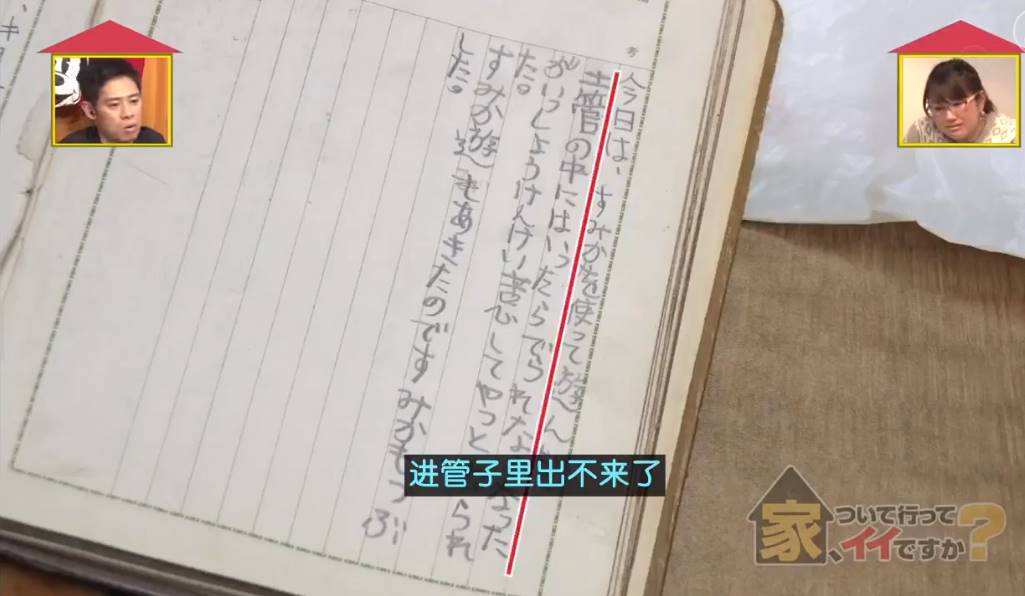 考
今日は、すみかを使って遊へん
土管の中にはいったらでられなくなった
がいっしょうけんけい苦心してやっと られ
た。
すみか遊へもあきたのですみかもつぶ
した。
进管子里出不来了
家、ついて行ってイイですか?